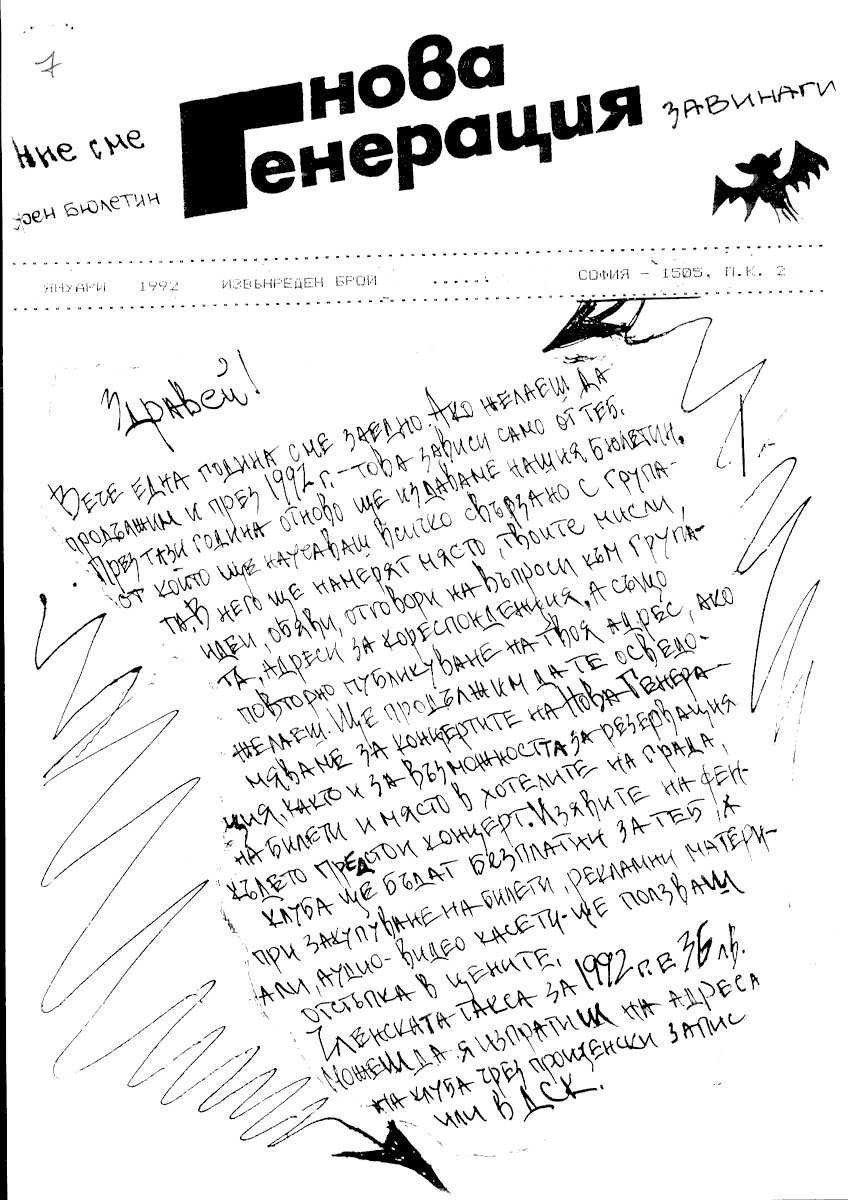 7
нова
Генерация
Ние сме
ЗАВИНАГИ
фен БЮЛЕТИН
ЯНУАРИ 1992 ИЗВЪНРЕДЕН БРОЙ ...... СОФИЯ - 1505, П.К. 2
Здравей!
Вече една година сме заедно. Ако желаеш да
продължим и през 1992 г. - това зависи само от теб.
През тази година отново ще издаваме нашия бюлетин,
от който ще научаваш всичко свързано с група-
та. В него ще намерят място, твоите мисли,
идеи, обяви, отговори на въпроси към група-
та, адреси за кореспонденция, а също
повторно публикуване на твоя адрес, ако
желаеш. Ще продължим да те осведо-
мяваме за концертите на Нова Генера-
ция, както и за възможността за резервация
на билети и място в хотелите на града,
където предстои концерт. Изявите на фен-
клуба ще бъдат безплатни за теб, а
при закупуване на билети, рекламни матери-
али, аудио- видео касети - ще ползваш
отстъпка в цените.
Членската такса за 1992 г. е 36 лв.
Можеш да я изпратиш на адреса
на клуба чрез пощенски запис
или в ДСК.